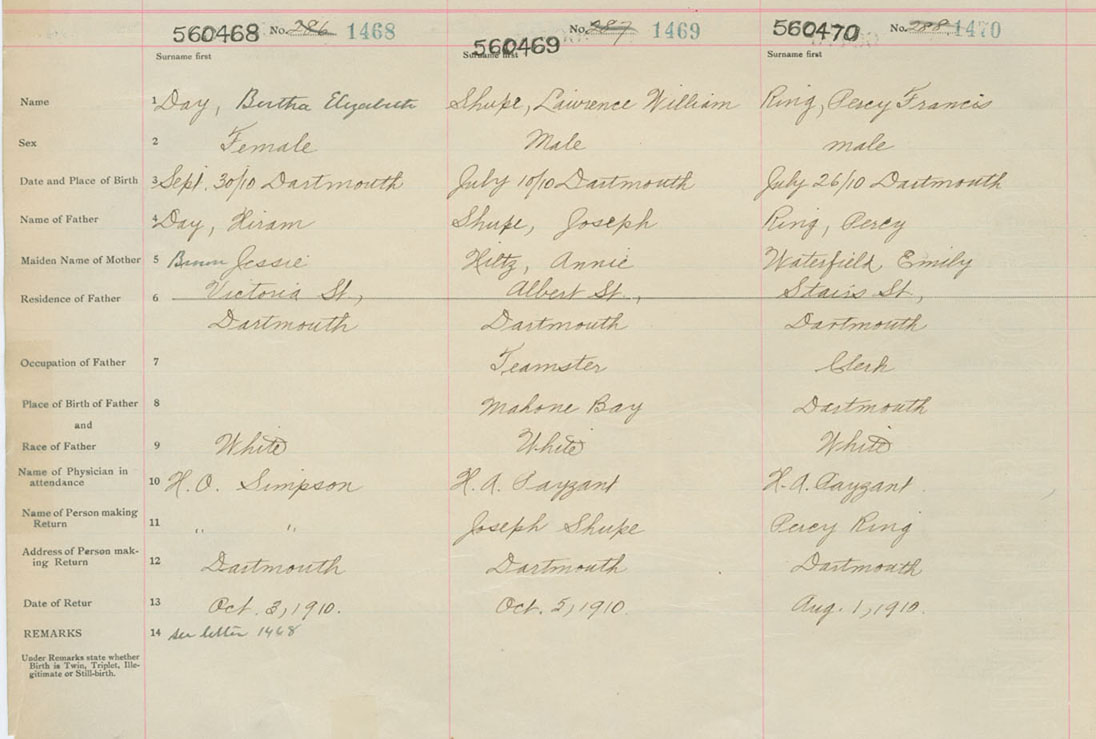 560468 No. 286 1468 560469 No. 287 1469 560470 No. 288 1470
Surname first Surname first Surname first
Name 1 Day, Bertha Elizabeth Shupe, Lawrence William Ring, Percy Francis
Sex 2 Female Male male
Date and Place of Birth 3 Sept. 30/10 Dartmouth July 10/10 Dartmouth July 26/10 Dartmouth
Name of Father 4 Day, Hiram Shupe, Joseph Ring, Percy
Maiden Name of Mother 5 Jessie Hiltz, Annie Waterfield, Emily
Residence of Father 6 Victoria St., Albert St., Stairs St.,
Dartmouth Dartmouth Dartmouth
Occupation of Father 7 Teamster Clerk
Place of Birth of Father 8 Mahone Bay Dartmouth
and
Race of Father 9 White White White
Name of Physician in
attendance 10 H.O. Simpson H.A. Payzant H.A. Payzant
Name of Person making
Return 11 " " Joseph Shupe Percy Ring
Address of Person mak-
ing Return 12 Dartmouth Dartmouth Dartmouth
Date of Retur 13 Oct. 3, 1910. Oct. 5, 1910. Aug. 1, 1910.
REMARKS 14 see letter 1468
Under Remarks state whether
Birth is Twin, Triplet, Ille-
gitimate or Still-birth.